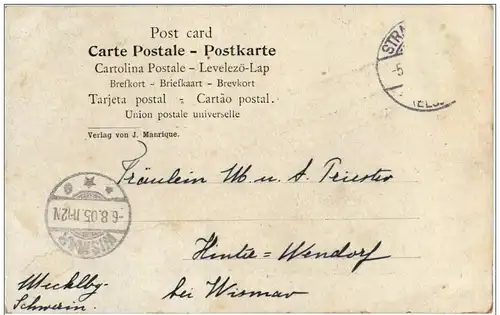 Post card
Carte Postale – Postkarte
Cartolina Postale – Levelező-Lap
Brefkort - Briefkaart - Brevkort
Tarjeta postal - Cartão postal.
Union postale universelle
Verlag von J. Manrique.
STRA
-5
(ELS
Fräulein M. u. A. Triester
WISMAR
-6.8.05.11-12N
Hinter-Wendorf
bei Wismar
Mecklbg-
Schwerin.